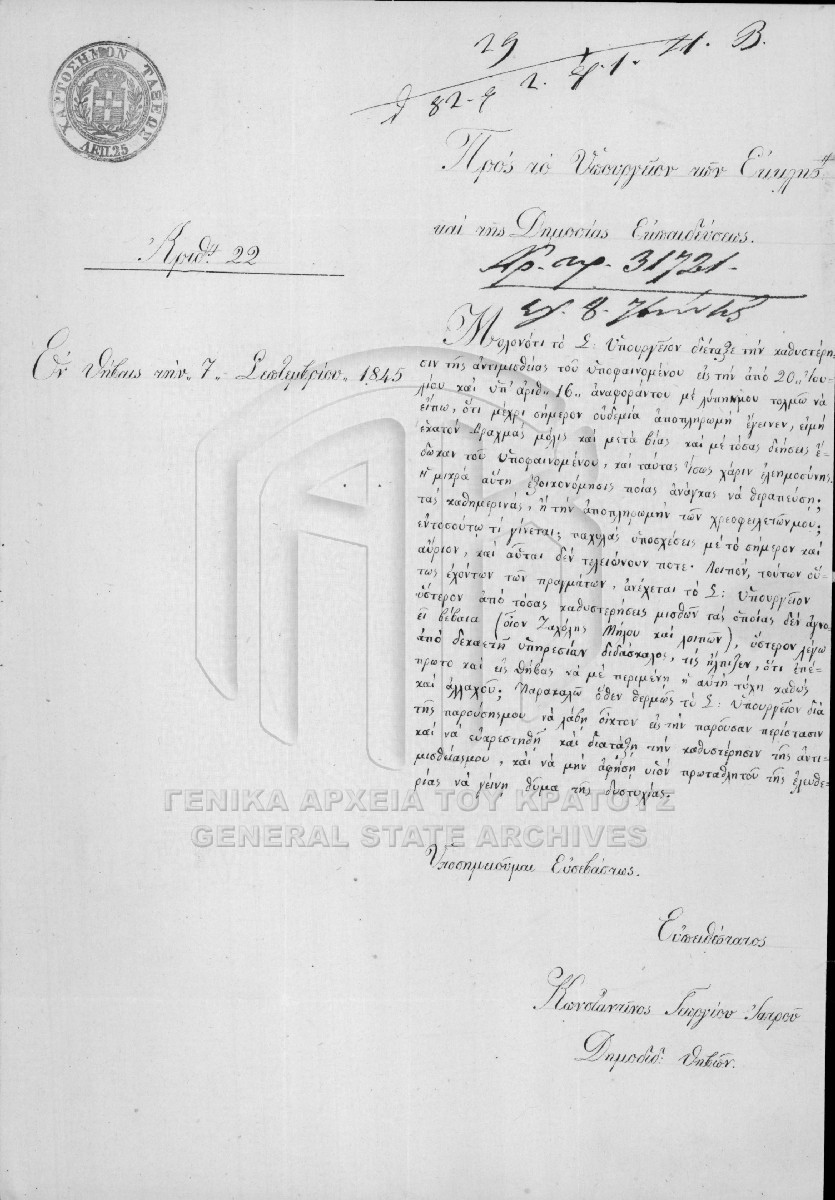 ΧΑΡΤΟΣΗΜΟΝ ΤΑΞΕΩΣ
ΛΕΠ. 25
29
Η. Β.
Πρός τὸ Ὑπουργεῖον τῶν Ἐκκλησ
καὶ τῆς Δημοσίας Ἐκπαιδεύσεως.
Ἀριθ. 22
Ἀρ. πρ. 31721.
Ἐν Θήβαις τὴν 7 Σεπτεμβρίου 1845
Μολονότι τὸ Σ: Ὑπουργεῖον διέταξε τὴν καθυστέρη-
σιν τῆς ἀντιμισθίας τοῦ ὑποφαινομένου εἰς τὴν ἀπὸ 20 Ἰου-
λίου καὶ ὑπ' ἀριθ. 16 ἀναφοράντου μὲ λύπηνμου τολμῶ νὰ
εἴπω, ὅτι μέχρι σήμερον οὐδεμία ἀποπληρωμὴ ἔγεινεν, εἰμὴ
ἑκατὸν δραχμὰς μόλις καὶ μετὰ βίας καὶ μὲ τόσας δεήσεις ἔ-
δωκαν τοῦ ὑποφαινομένου, καὶ ταύτας ἴσως χάριν ἐλεημοσύνης.
ἡ μικρὰ αὕτη ἐξοικονόμησις ποίας ἀνάγκας νὰ θεραπεύσῃ;
τὰς καθημερινάς, ἢ τὴν ἀποπληρωμὴν τῶν χρεοφειλετῶνμου;
ἐντοσούτῳ τί γίνεται; παχυλὰς ὑποσχέσεις μὲ τὸ σήμερον καὶ
αὔριον, καὶ αὗται δὲν τελειώνουν ποτέ. Λοιπόν, τούτων οὕ-
τως ἐχόντων τῶν πραγμάτων, ἀνέχεται τὸ Σ: Ὑπουργεῖον
ὕστερον ἀπὸ τόσας καθυστερήσεις μισθῶν τὰς ὁποίας δὲν ἀγνο-
εῖ βέβαια (οἷον Ζαχόλης Μήλου καὶ λοιπῶν), ὕστερον λέγω
ἀπὸ δεκαετῆ ὑπηρεσίαν διδάσκαλος, τίς ἤλπιζεν, ὅτι ἐπέ-
πρωτο καὶ εἰς Θήβας νὰ μὲ περιμένῃ ἡ αὐτὴ τύχη καθὼς
καὶ ἀλλαχοῦ; Παρακαλῶ ὅθεν θερμῶς τὸ Σ: Ὑπουργεῖον διὰ
τῆς παρούσηςμου νὰ λάβῃ οἶκτον εἰς τὴν παροῦσαν περίστασιν
καὶ νὰ εὐαρεστηθῇ καὶ διατάξῃ τὴν καθυστέρησιν τῆς ἀντι-
μισθείαςμου, καὶ νὰ μὴν ἀφήσῃ υἱὸν πρωταθλητοῦ τῆς ἐλευθε-
ρίας νὰ γείνῃ θῦμα τῆς δυστυχίας.
ΓΕΝΙΚΑ ΑΡΧΕΙΑ ΤΟΥ ΚΡΑΤΟΥΣ
GENERAL STATE ARCHIVES
Ὑποσημειοῦμαι Εὐσεβάστως.
Εὐπειθέστατος
Κωνσταντῖνος Γεωργίου Ἰατροῦ
Δημοδιδ: Θηβῶν.